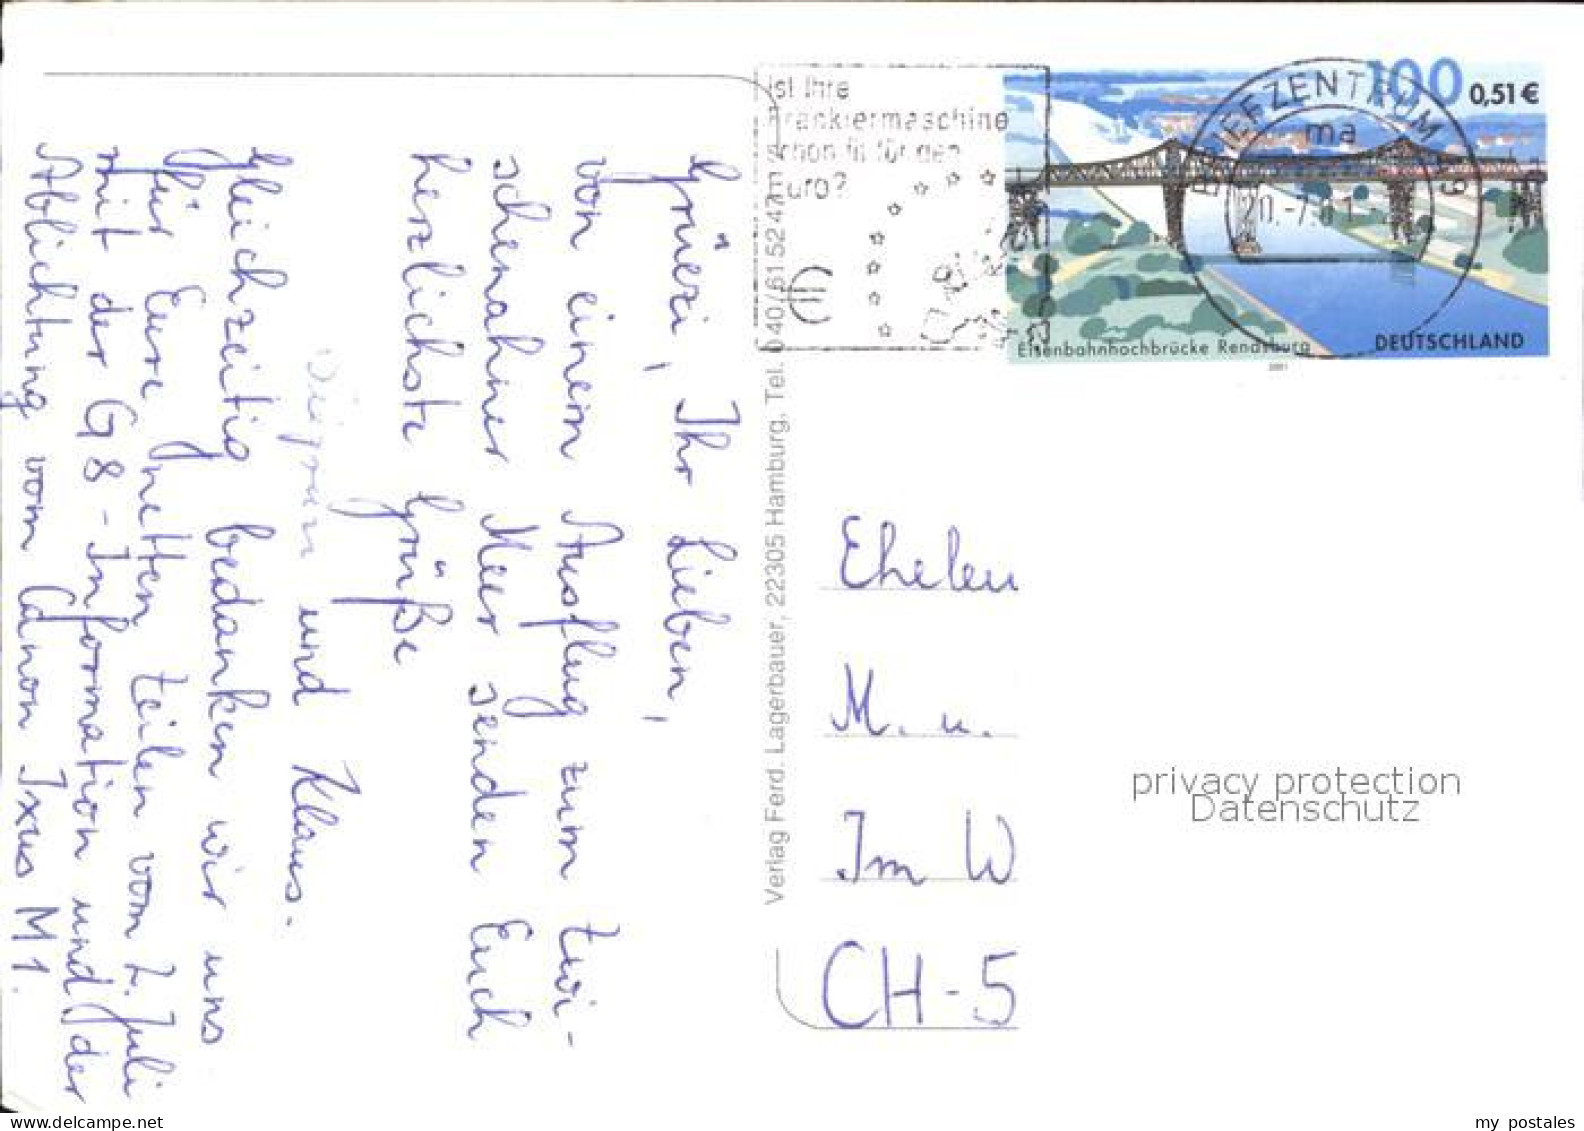 Grüezi, Ihr Lieben,
von einem Ausflug zum Zwi-
schenahner Meer senden Euch
herzlichste Grüße
und Klaus.
Gleichzeitig bedanken wir uns
für Eure netten Zeilen vom 2. Juli
mit der G8-Information und der
Ablichtung vom Canon Ixus M1.
Verlag Ferd. Lagerbauer, 22305 Hamburg, Tel. 040/615247
Ist Ihre
Frankiermaschine
schon fit für den
Euro?
BRIEFZENTRUM
ma
100
0,51 €
Eisenbahnhochbrücke Rendsburg
DEUTSCHLAND
2001
Eheleu
M. u.
Im W
CH-5
privacy protection
Datenschutz
my postales